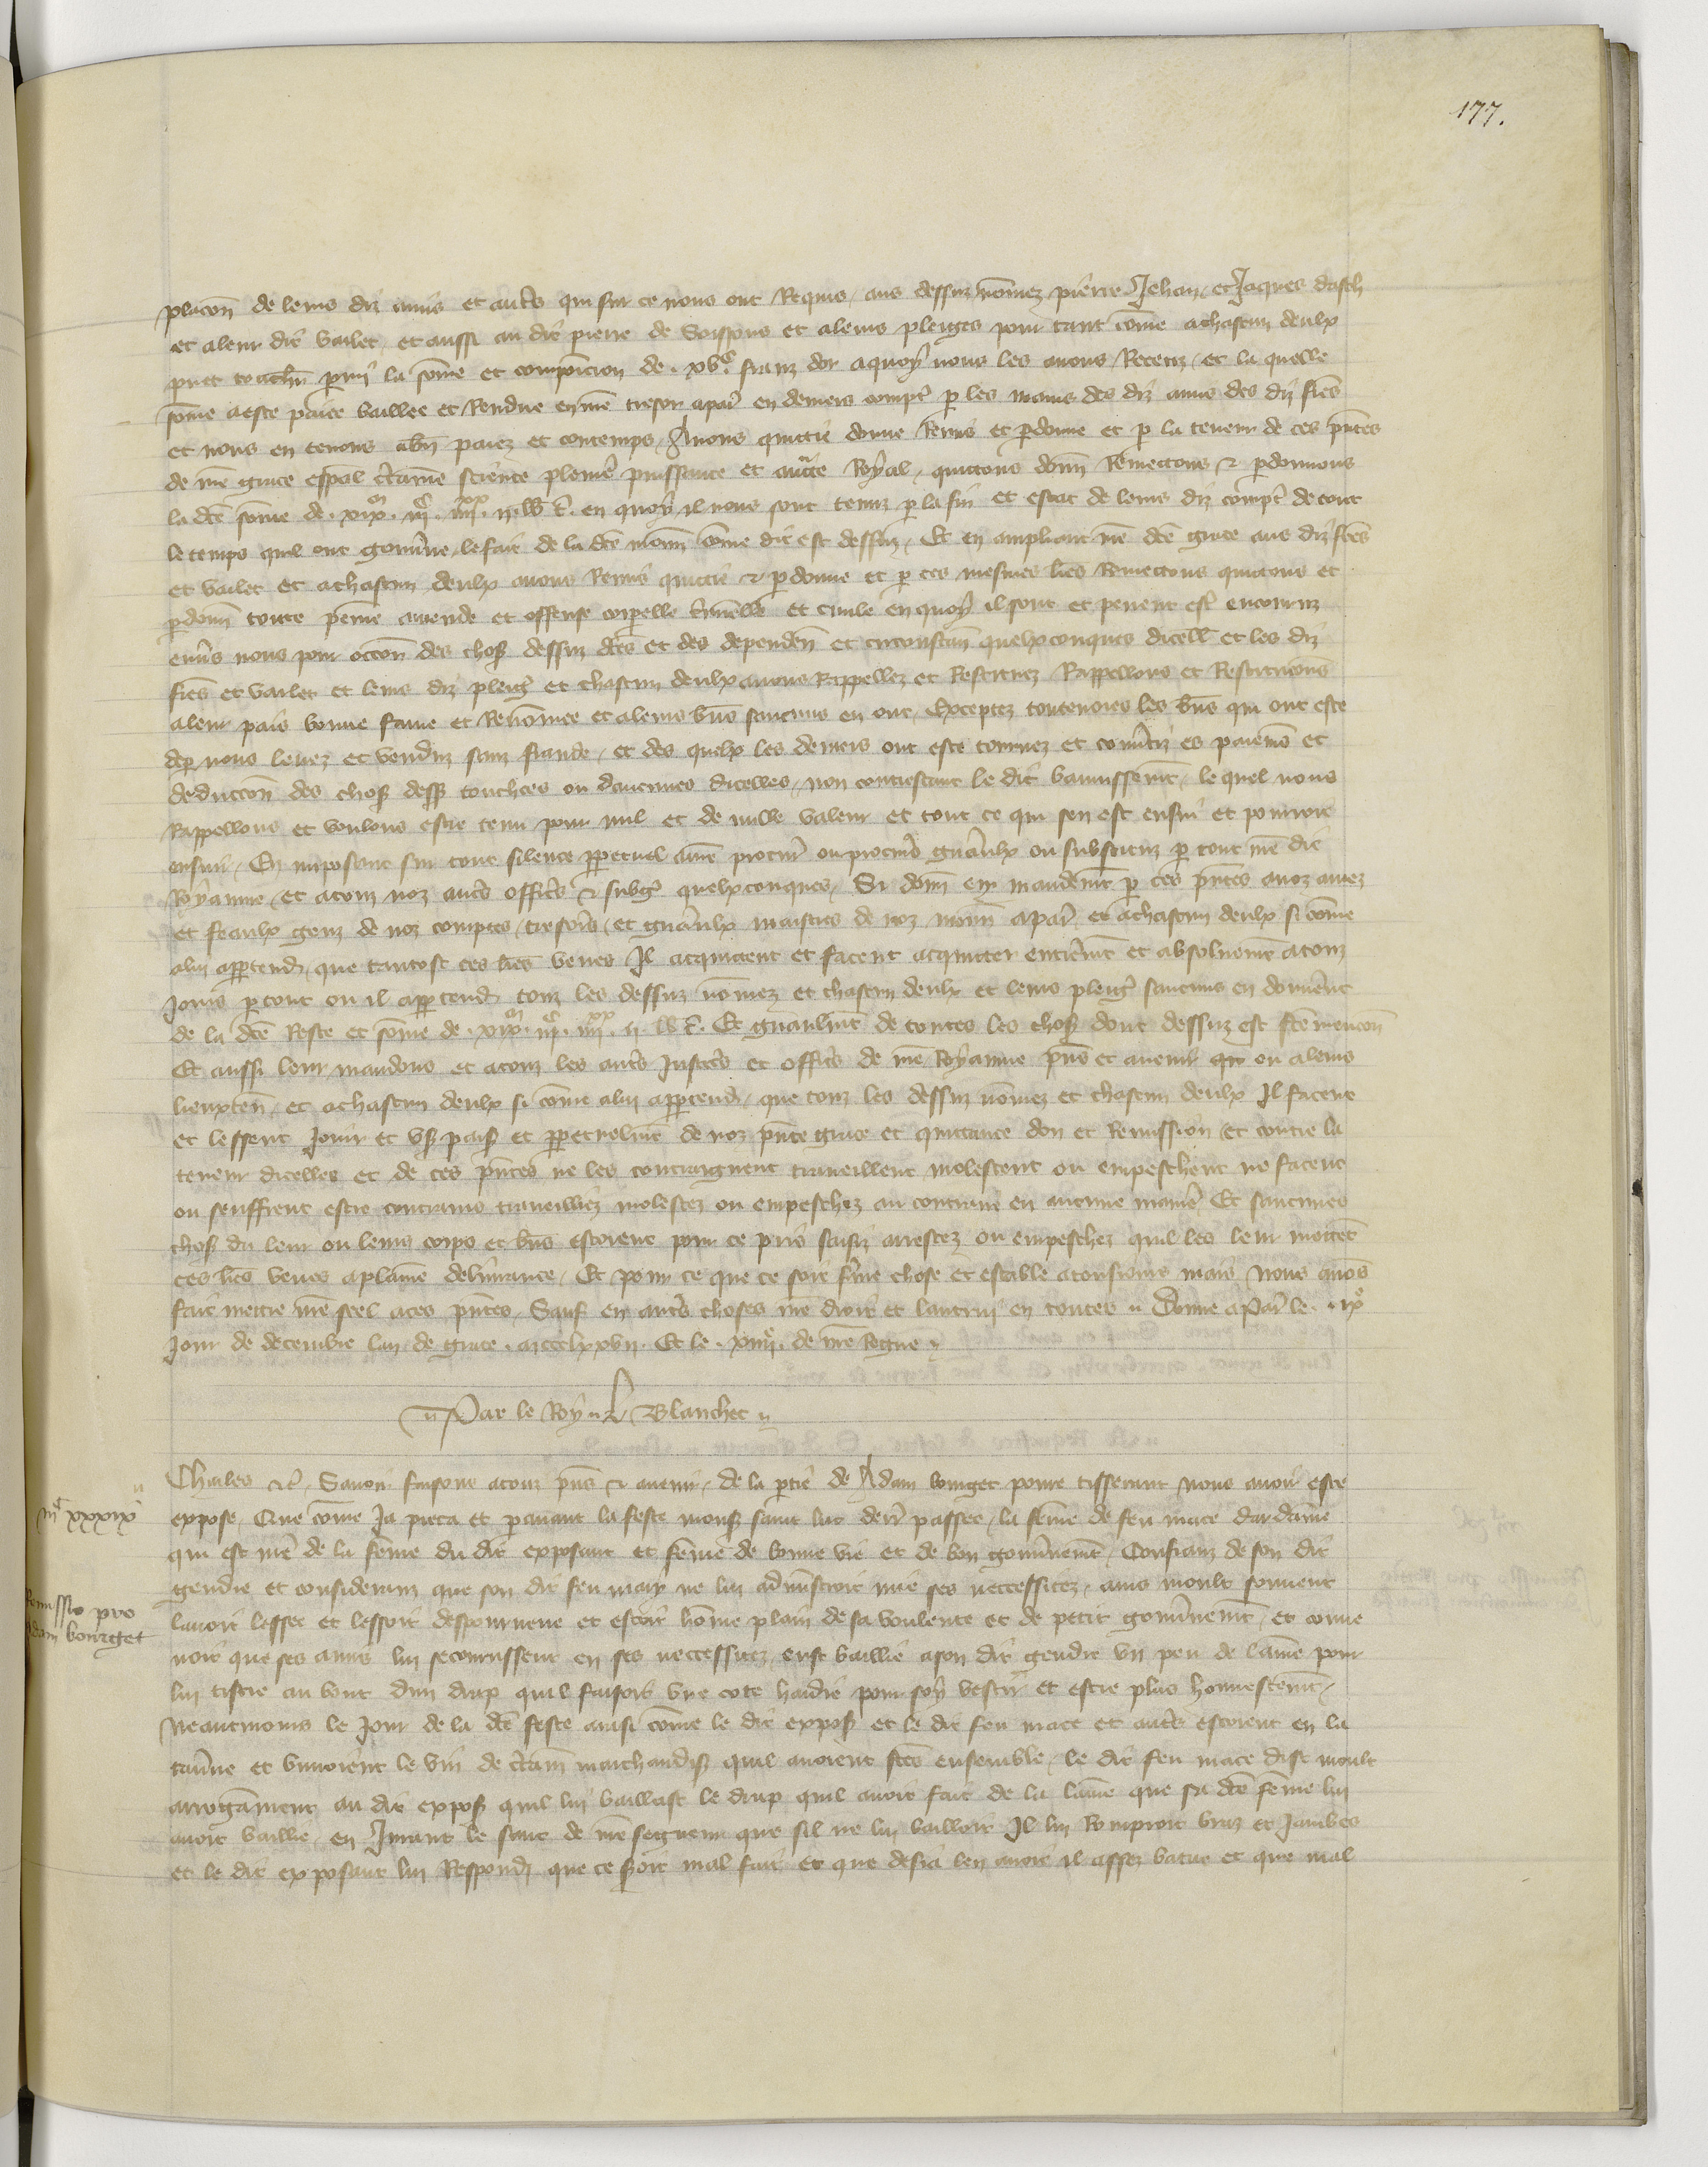 177.
placōn de leurs diz amis et autr̄s qui sur ce nous ont Requis, aus dessuz nōmez pierre Jehan, et Jaques dasch
et a leur dit vallet, et aussi au dit pierre de Soissons et a leurs pleiges pour tant cōme a chascun deulx
puet touch̄r parmi la sōme et composicion de . xvc. franz dor a quoy nous les avons Receuz, et la quelle
sōme a este paiee baillee et Rendue en nr̄e tresor a par̄ en deniers compt̄ p les mains des diz amis des diz fr̄es
et nous en tenons a bn̄ paiez et contemps, Avons quittie donne Remis et pdonne et p la teneur de ces pn̄tes
de nr̄e grace esp̄al c̄taine science plenie puissance et auct̄e Royal, quittons donn̄ Remettons & pdonnons
la dc̄e sōme de . xixm. iijc. iiijxx. ij. lb t̄. en quoy il nous sont tenuz p la fin et estat de leurs diz compt̄ de tout
le temps quil ont gouūne le fait de la dc̄e monn̄ cōme dit est dessuz, Et en ampliant nr̄e dc̄e grace aus diz fr̄es
et vallet et a chascun deulx avons Remis quittie & pdonne et p ces mesmes lr̄es Remettons quittons et
pdonn̄ toute peine amende et offense corporelle c̄minelle et civile en quoy il sont et pevent est̄ encouruz
env̄s nous pour occōn des chos̄ dessuz dc̄es et des dependen̄ et circonstan̄ quelxconques dicell̄ et les diz
fr̄es et vallet et leurs diz pleiḡ et chascun deulx avons Rappellez et Restituez Rappellons et Restituons
a leur pais bonne fame et Renōmee et a leurs bn̄s saucuns en ont, Exceptez toutevoies les bn̄s qui ont este
de p nous levez et venduz sanz fraude, et des quelx les deniers ont este tournez et conv̄tiz es paiemēs et
deduccōn des chos̄ dess̄ touchees ou daucunes dicelles, non contrestant le dit bannissemt̄, le quel nous
Rappellons et voulons estre tenu pour nul et de nulle valeur et tout ce qui sen est ensui et pourroit
ensuir, En imposant sur tout silence ppetuel a nr̄e procur̄ ou procurs gn̄aulx ou substituz p tout nr̄e dit
Royaume, et a touz noz autr̄s offic̄s & subḡ quelxconques, Si donn̄ en mandemt̄ p ces pn̄tes a noz amez
et feaulx genz de noz comptes, tresor̄s, et gn̄aulx maistres de noz monn̄ a par̄ et a chascun deulx si cōme
a lui apptendr̄, que tantost ces lr̄es veues Il acquittent et facent acquitter entierēmt̄ et absoluemt̄ a touz
jours ptout ou il apptendr̄ touz les dessuz nōmez et chascun deulx et leurs pleiḡ saucuns en donnēnt
de la dc̄e Reste et sōme de . xixm. iijc. iiijxx. ij. lb t̄. Et gn̄aulmt̄ de toutes les chos̄ dont dessuz est fc̄e mencōn
Et aussi leur mandons et a touz les autr̄s justic̄s et offic̄s de nr̄e Royaume pn̄s et avenir ou a leurs
lieuxten̄, et a chascun deulx si cōme a lui apptendr̄, que touz les dessuz nōmez et chascun deulx Il facent
et lessent Jouir et us̄ paisib̄ et ppetuelmt̄ de noz pn̄te grace et quittance don et Remission et contre la
teneur dicelles et de ces pn̄tes ne les contraignent traveillent molestent ou empeschent ne facent
ou seuffrent estre contrains traveilliez molestez ou empeschez au contraire en aucune manie Et saucunes
chos̄ du leur ou leurs corps et bn̄s estoient pour ce pris saisiz arrestez ou empeschez quil les leur mettēt
ces lr̄es veues a plaine delivrance, Et pour ce que ce soit fr̄me chose et estable a tousjours mais nous avōs
fait mettre nr̄e seel a ces pn̄tes, Sauf en autr̄s choses nr̄e droit et lautrui en toutes. Donne a Par̄ le . ixe
jour de decembre lan de grace . mccclxxvij. Et le . xiiije. de nr̄e Regne.
Par le Roy. Blanchet
iijc xxxix
Charles &c̄, Savoir faisons a touz pn̄s & avenir, de la ptie de Adam bourget povre tisserant nous avoir este
expose, Que cōme ja pieca et pavant la feste mons̄ saint luc dern̄ passee, la fēme de feu mace dardaine
qui est mē de la fēme du dit exposant et fēme de bonne vie et de bon gouv̄nemt̄, Confianz de son dit
gendre et considerant que son dit feu mary ne lui admistroit mie ses neccessitez, ains moult souvent
Remissio pro
Adam bourget
lavoit lessee et lessoit despourveue et estoit hōme plain de sa voulente et de petit gouv̄nemt̄, et conve
noit que ses amis lui secourussent en ses neccessitez, eust baillie a son dit gendre un peu de laine pour
lui tistre au bout dun drap quil faisoit une cote hardie pour soy vestir et estre plus honnestemt̄,
Neantmoins le Jour de la dc̄e feste ainsi cōme le dit expos̄ et le dit feu mace et autr̄s estoient en la
tav̄ne et buvoient le vin de c̄tain̄ marchandis̄ quil avoient fc̄es ensemble, le dit feu mace dist moult
arrogāment au dit expos̄ quil lui baillast le drap quil avoit fait de la laine que sa dc̄e fēme lui
avoit baillie, en Jurant le sanc de nr̄e seigneur que sil ne lui bailloit Il lui Romproit braz et Jambes
et le dit exposant lui Respondi que ce s̄oit mal fait et que desja len avoit il assez batue et que mal